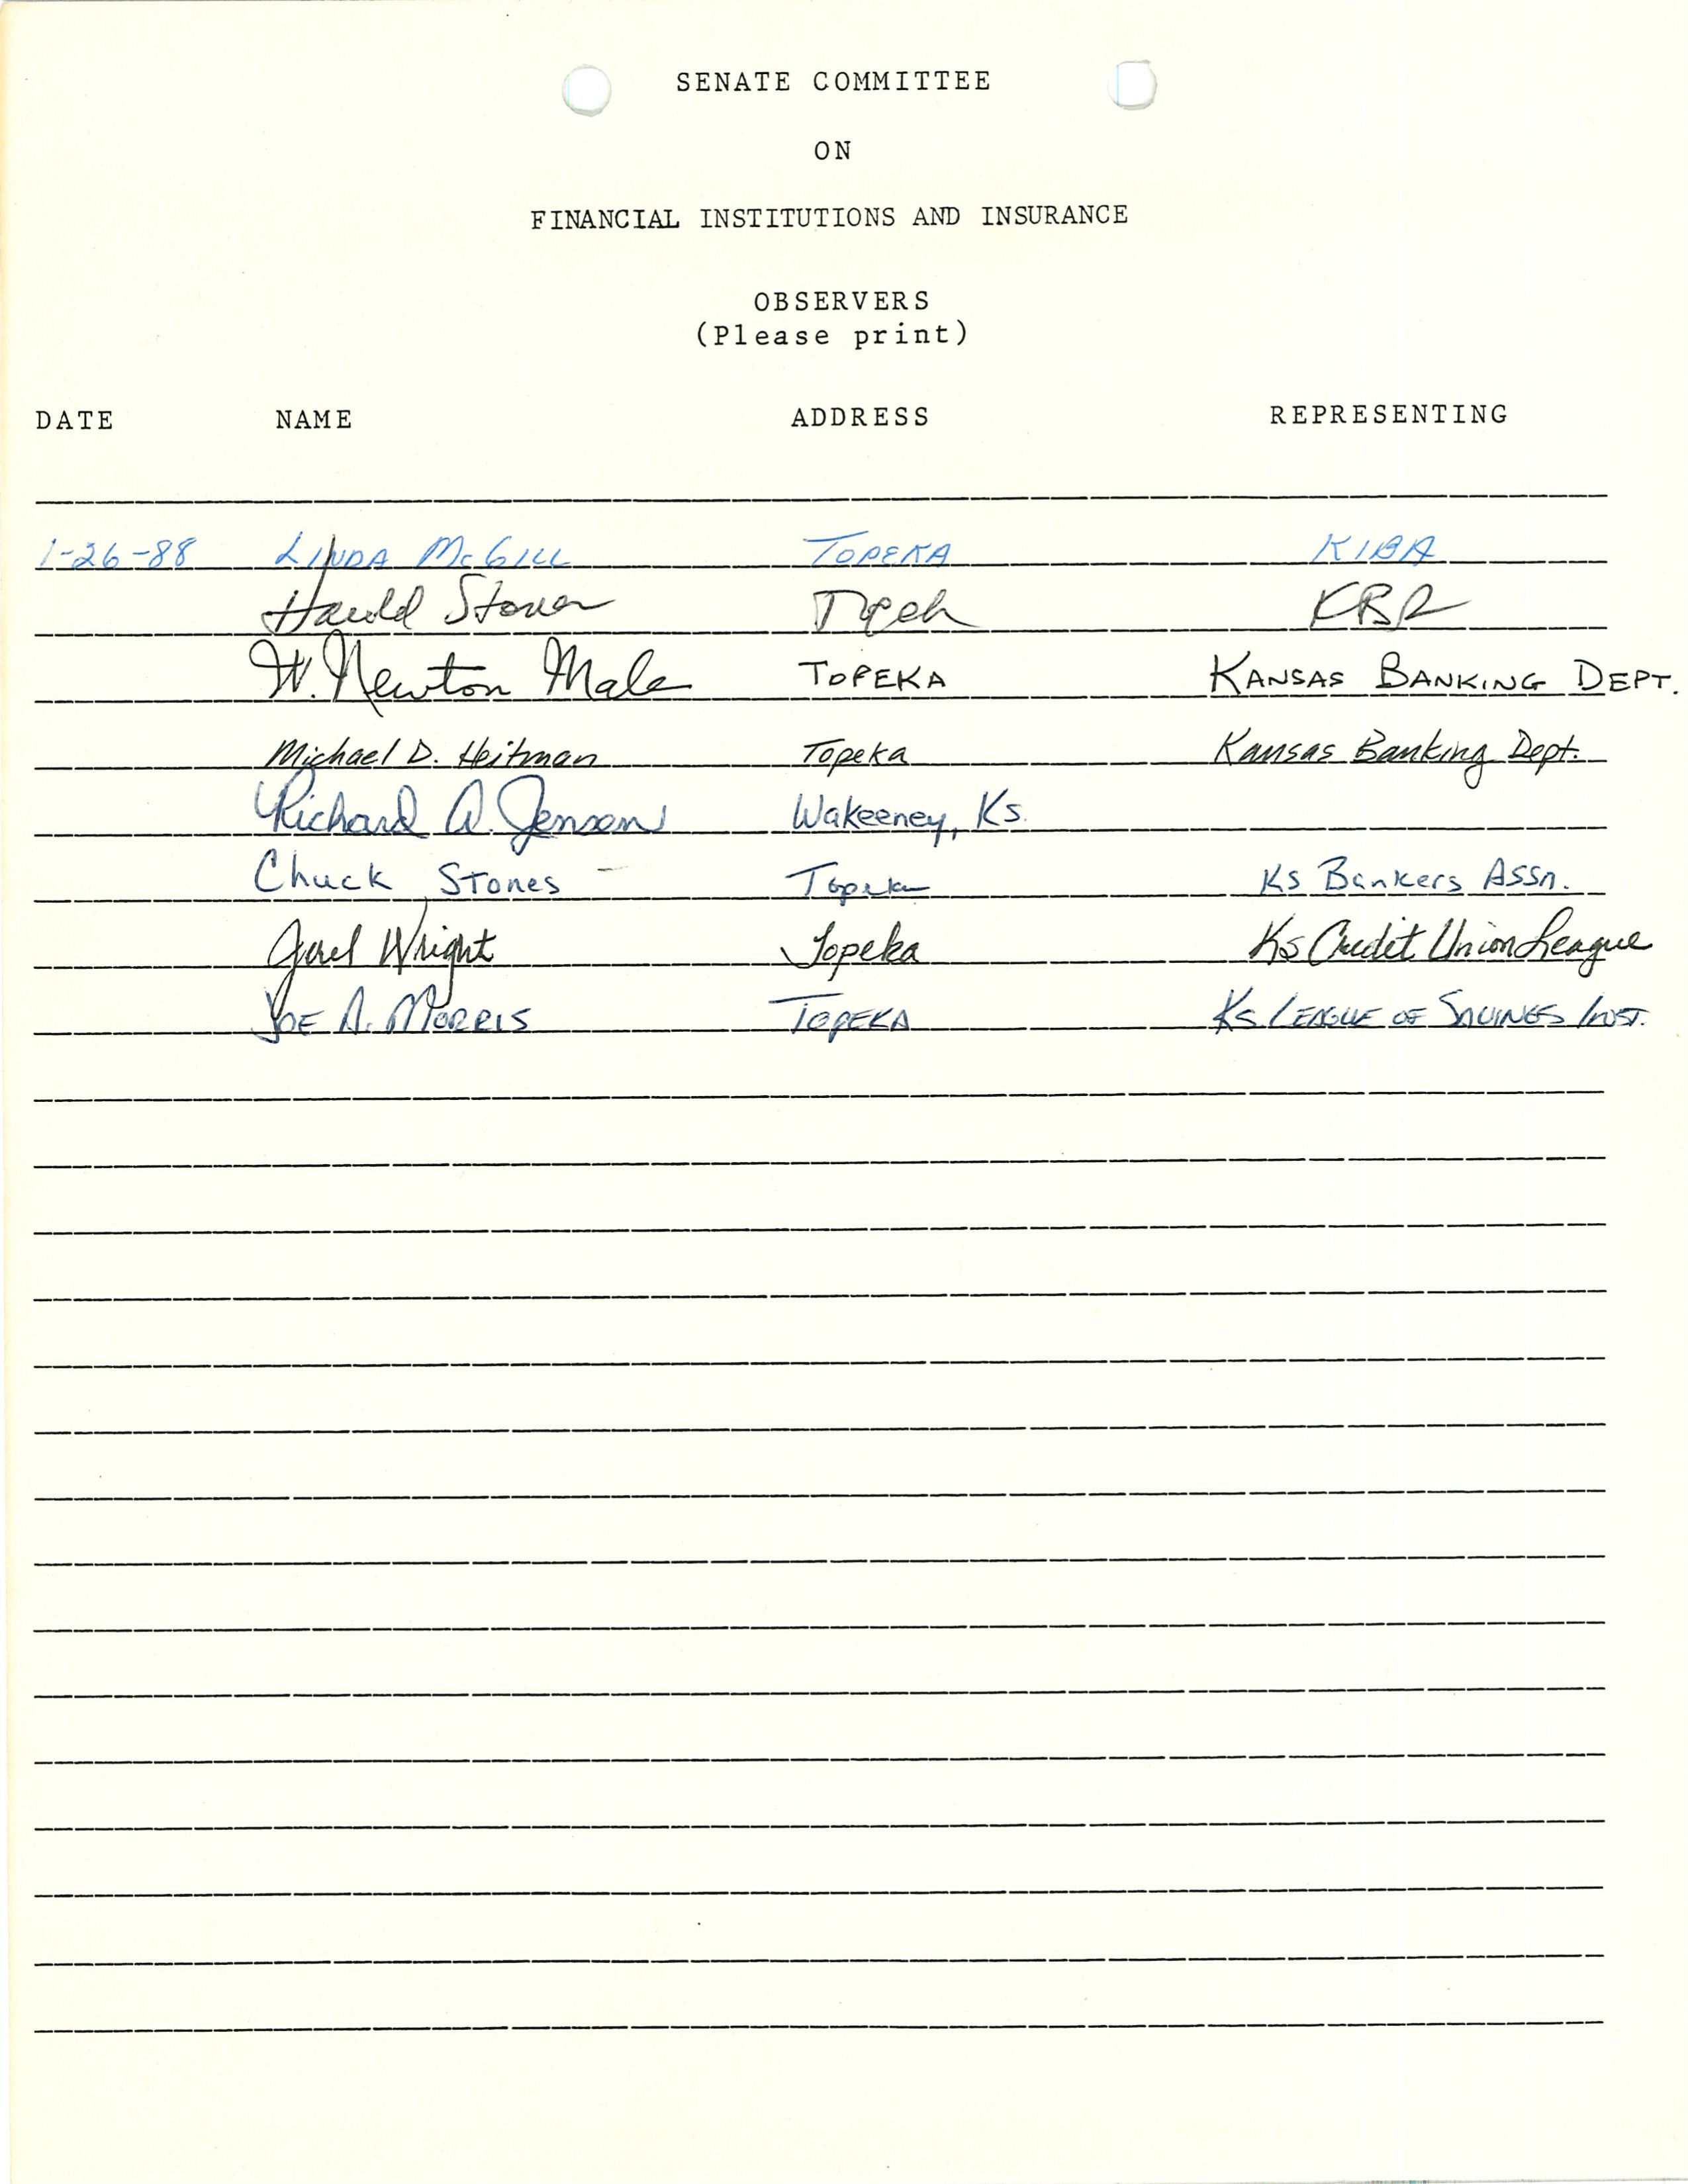 SENATE COMMITTEE
ON
FINANCIAL INSTITUTIONS AND INSURANCE
OBSERVERS
(Please print)
DATE NAME ADDRESS REPRESENTING
1-26-88 LINDA McGILL TOPEKA KIBA
Harold Stones
W. Newton Male TOPEKA KANSAS BANKING DEPT.
Michael D. Heitman Topeka Kansas Banking Dept.
Richard A. Jenson Wakeeney, Ks.
Chuck Stones Topeka Ks Bankers Assn.
Jerel Wright Topeka Ks Credit Union League
JOE A. MORRIS TOPEKA KS LEAGUE OF SAVINGS INST.